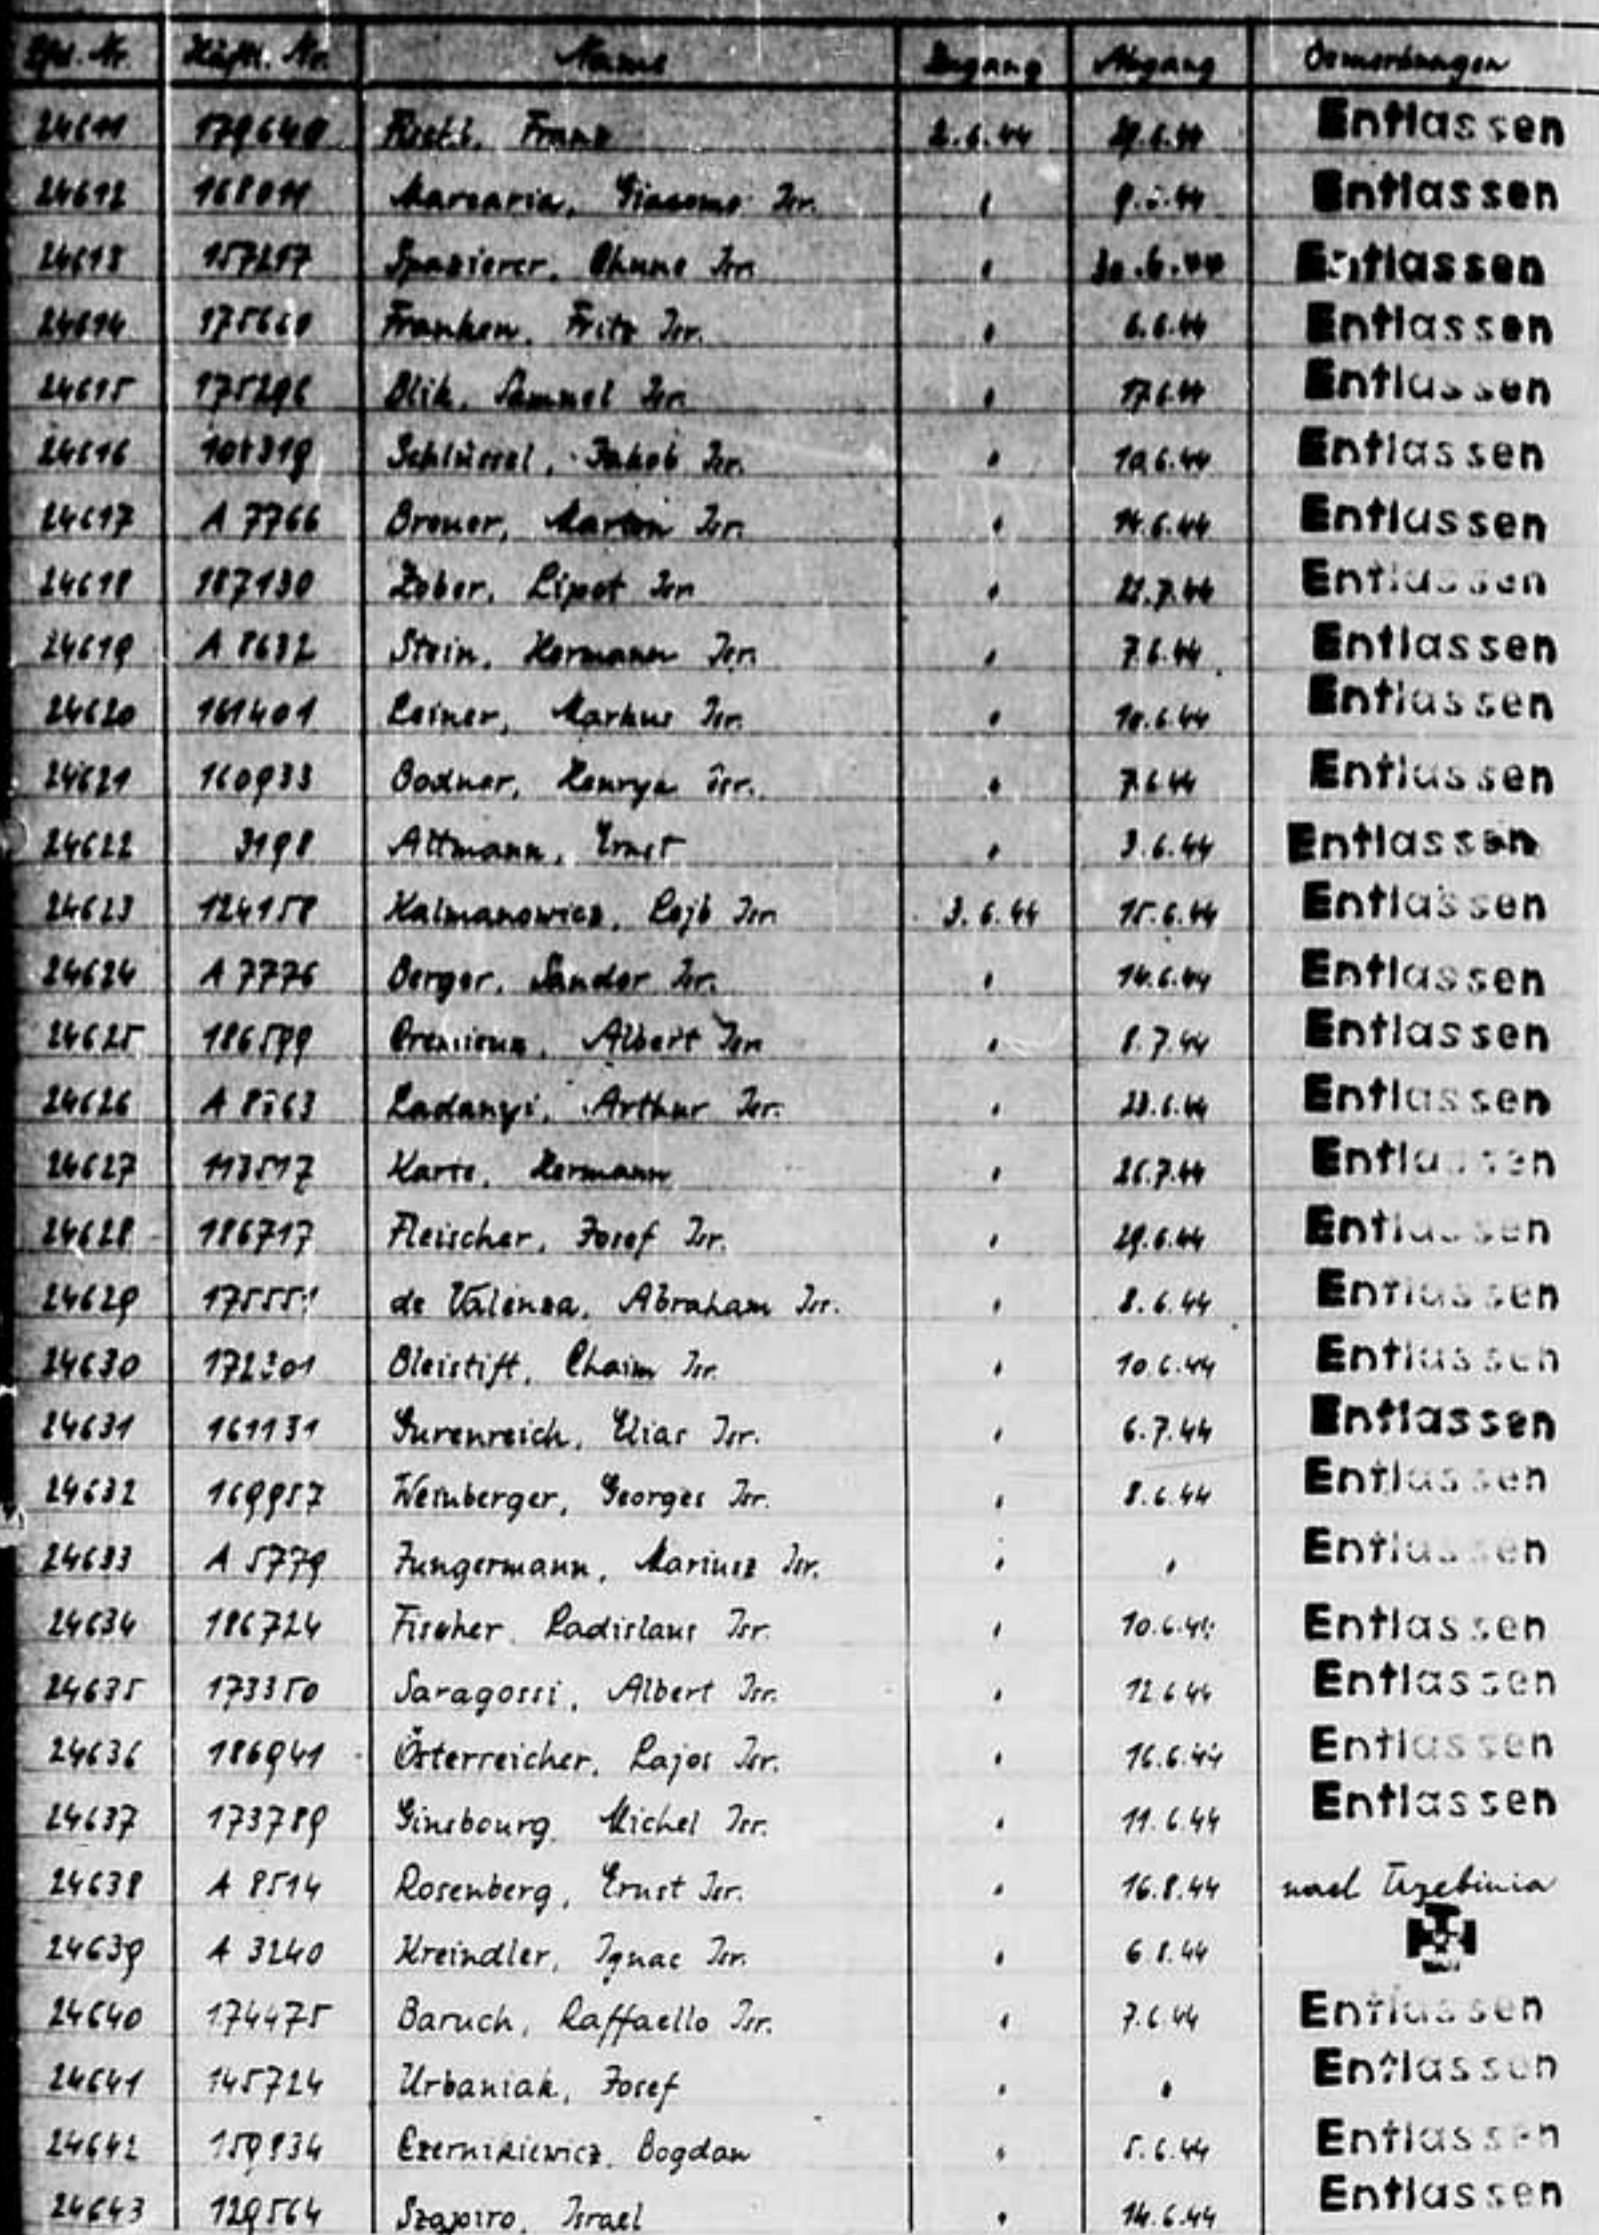 Lfd. Nr. Häftl. Nr. Name Zugang Abgang Bemerkungen
24611 179640 Franz 2.6.44 29.6.44 Entlassen
24612 168011 Giacomo Isr. " 9.6.44 Entlassen
24613 157257 Spazierer, Chune Isr. " 30.6.44 Entlassen
24614 175660 Franken, Fritz Isr. " 6.6.44 Entlassen
24615 175296 Olik, Samuel Isr. " 17.6.44 Entlassen
24616 Schlüssel, Jakob Isr. " 10.6.44 Entlassen
24617 A 7766 Breuer, Martin Isr. " 14.6.44 Entlassen
24618 187130 Zober, Lipot Isr. " 22.7.44 Entlassen
24619 A 8632 Stein, Hermann Isr. " 7.6.44 Entlassen
24620 161401 Leiner, Markus Isr. " 10.6.44 Entlassen
24621 160933 Bodner, Henryk Isr. " 7.6.44 Entlassen
24622 3198 Altmann, Ernst " 3.6.44 Entlassen
24623 124158 Kalmanowicz, Lejb Isr. 3.6.44 15.6.44 Entlassen
24624 A 7776 Berger, Sandor Isr. " 14.6.44 Entlassen
24625 186599 Albert Isr. " 8.7.44 Entlassen
24626 A 8763 Ladanyi, Arthur Isr. " 23.6.44 Entlassen
24627 113517 Hermann " 26.7.44 Entlassen
24628 186717 Fleischer, Josef Isr. " 29.6.44 Entlassen
24629 175551 de Valensa, Abraham Isr. " 8.6.44 Entlassen
24630 172301 Bleistift, Chaim Isr. " 10.6.44 Entlassen
24631 161131 Gurenreich, Elias Isr. " 6.7.44 Entlassen
24632 169957 Weinberger, Georges Isr. " 8.6.44 Entlassen
24633 A 5779 Jungermann, Mariusz Isr. " " Entlassen
24634 186724 Fischer, Ladislaus Isr. " 10.6.44 Entlassen
24635 173350 Saragossi, Albert Isr. " 12.6.44 Entlassen
24636 186941 Österreicher, Lajos Isr. " 16.6.44 Entlassen
24637 173789 Ginsbourg, Michel Isr. " 11.6.44 Entlassen
24638 A 8514 Rosenberg, Ernst Isr. " 16.8.44 nach Trzebinia
24639 A 3240 Kreindler, Ignac Isr. " 6.8.44
24640 174475 Baruch, Raffaello Isr. " 7.6.44 Entlassen
24641 145724 Urbaniak, Josef " " Entlassen
24642 159834 Czernikiewicz, Bogdan " 5.6.44 Entlassen
24643 129564 Szapiro, Israel " 14.6.44 Entlassen